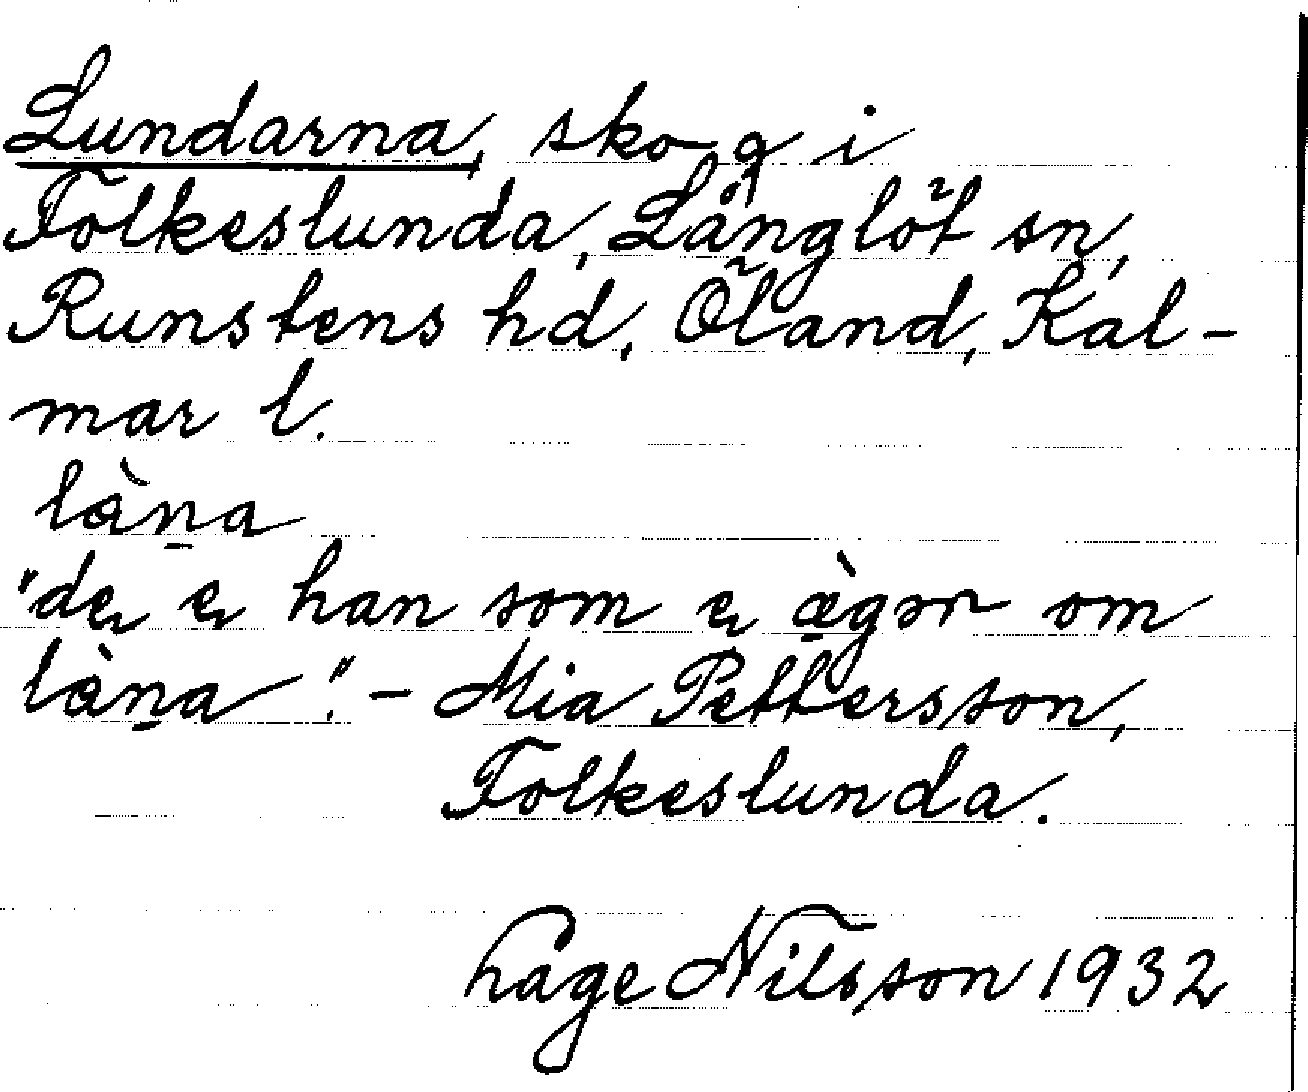 Lundarna, skog i
Folkeslunda, Långlöt sn,
Runstens hd, Öland, Kal-
mar l.
làṉa
"de̢ e̢ han som e̢ æ̀gər om
làṉa". - Mia Pettersson,
Folkeslunda.
Hage Nilsson 1932